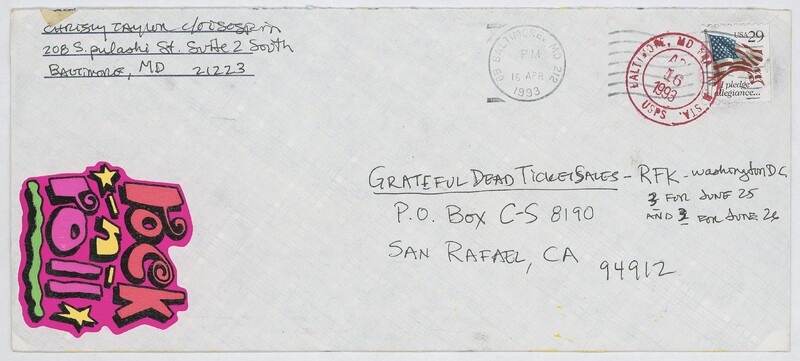 CHRISTY TAYLOR C/O
208 S. Pulaski St. Suite 2 South
BALTIMORE, MD 21223
BALTIMORE, MD 212
PM
16 APR
1993
BALTIMORE, MD
16
1993
USPS
STA.
USA 29
I pledge
allegiance...
GRATEFUL DEAD TICKET SALES - RFK - Washington D.C
3 FOR JUNE 25
AND 3 FOR JUNE 26
P.O. Box C-S 8190
SAN RAFAEL, CA
94912
rock
-n-
roll